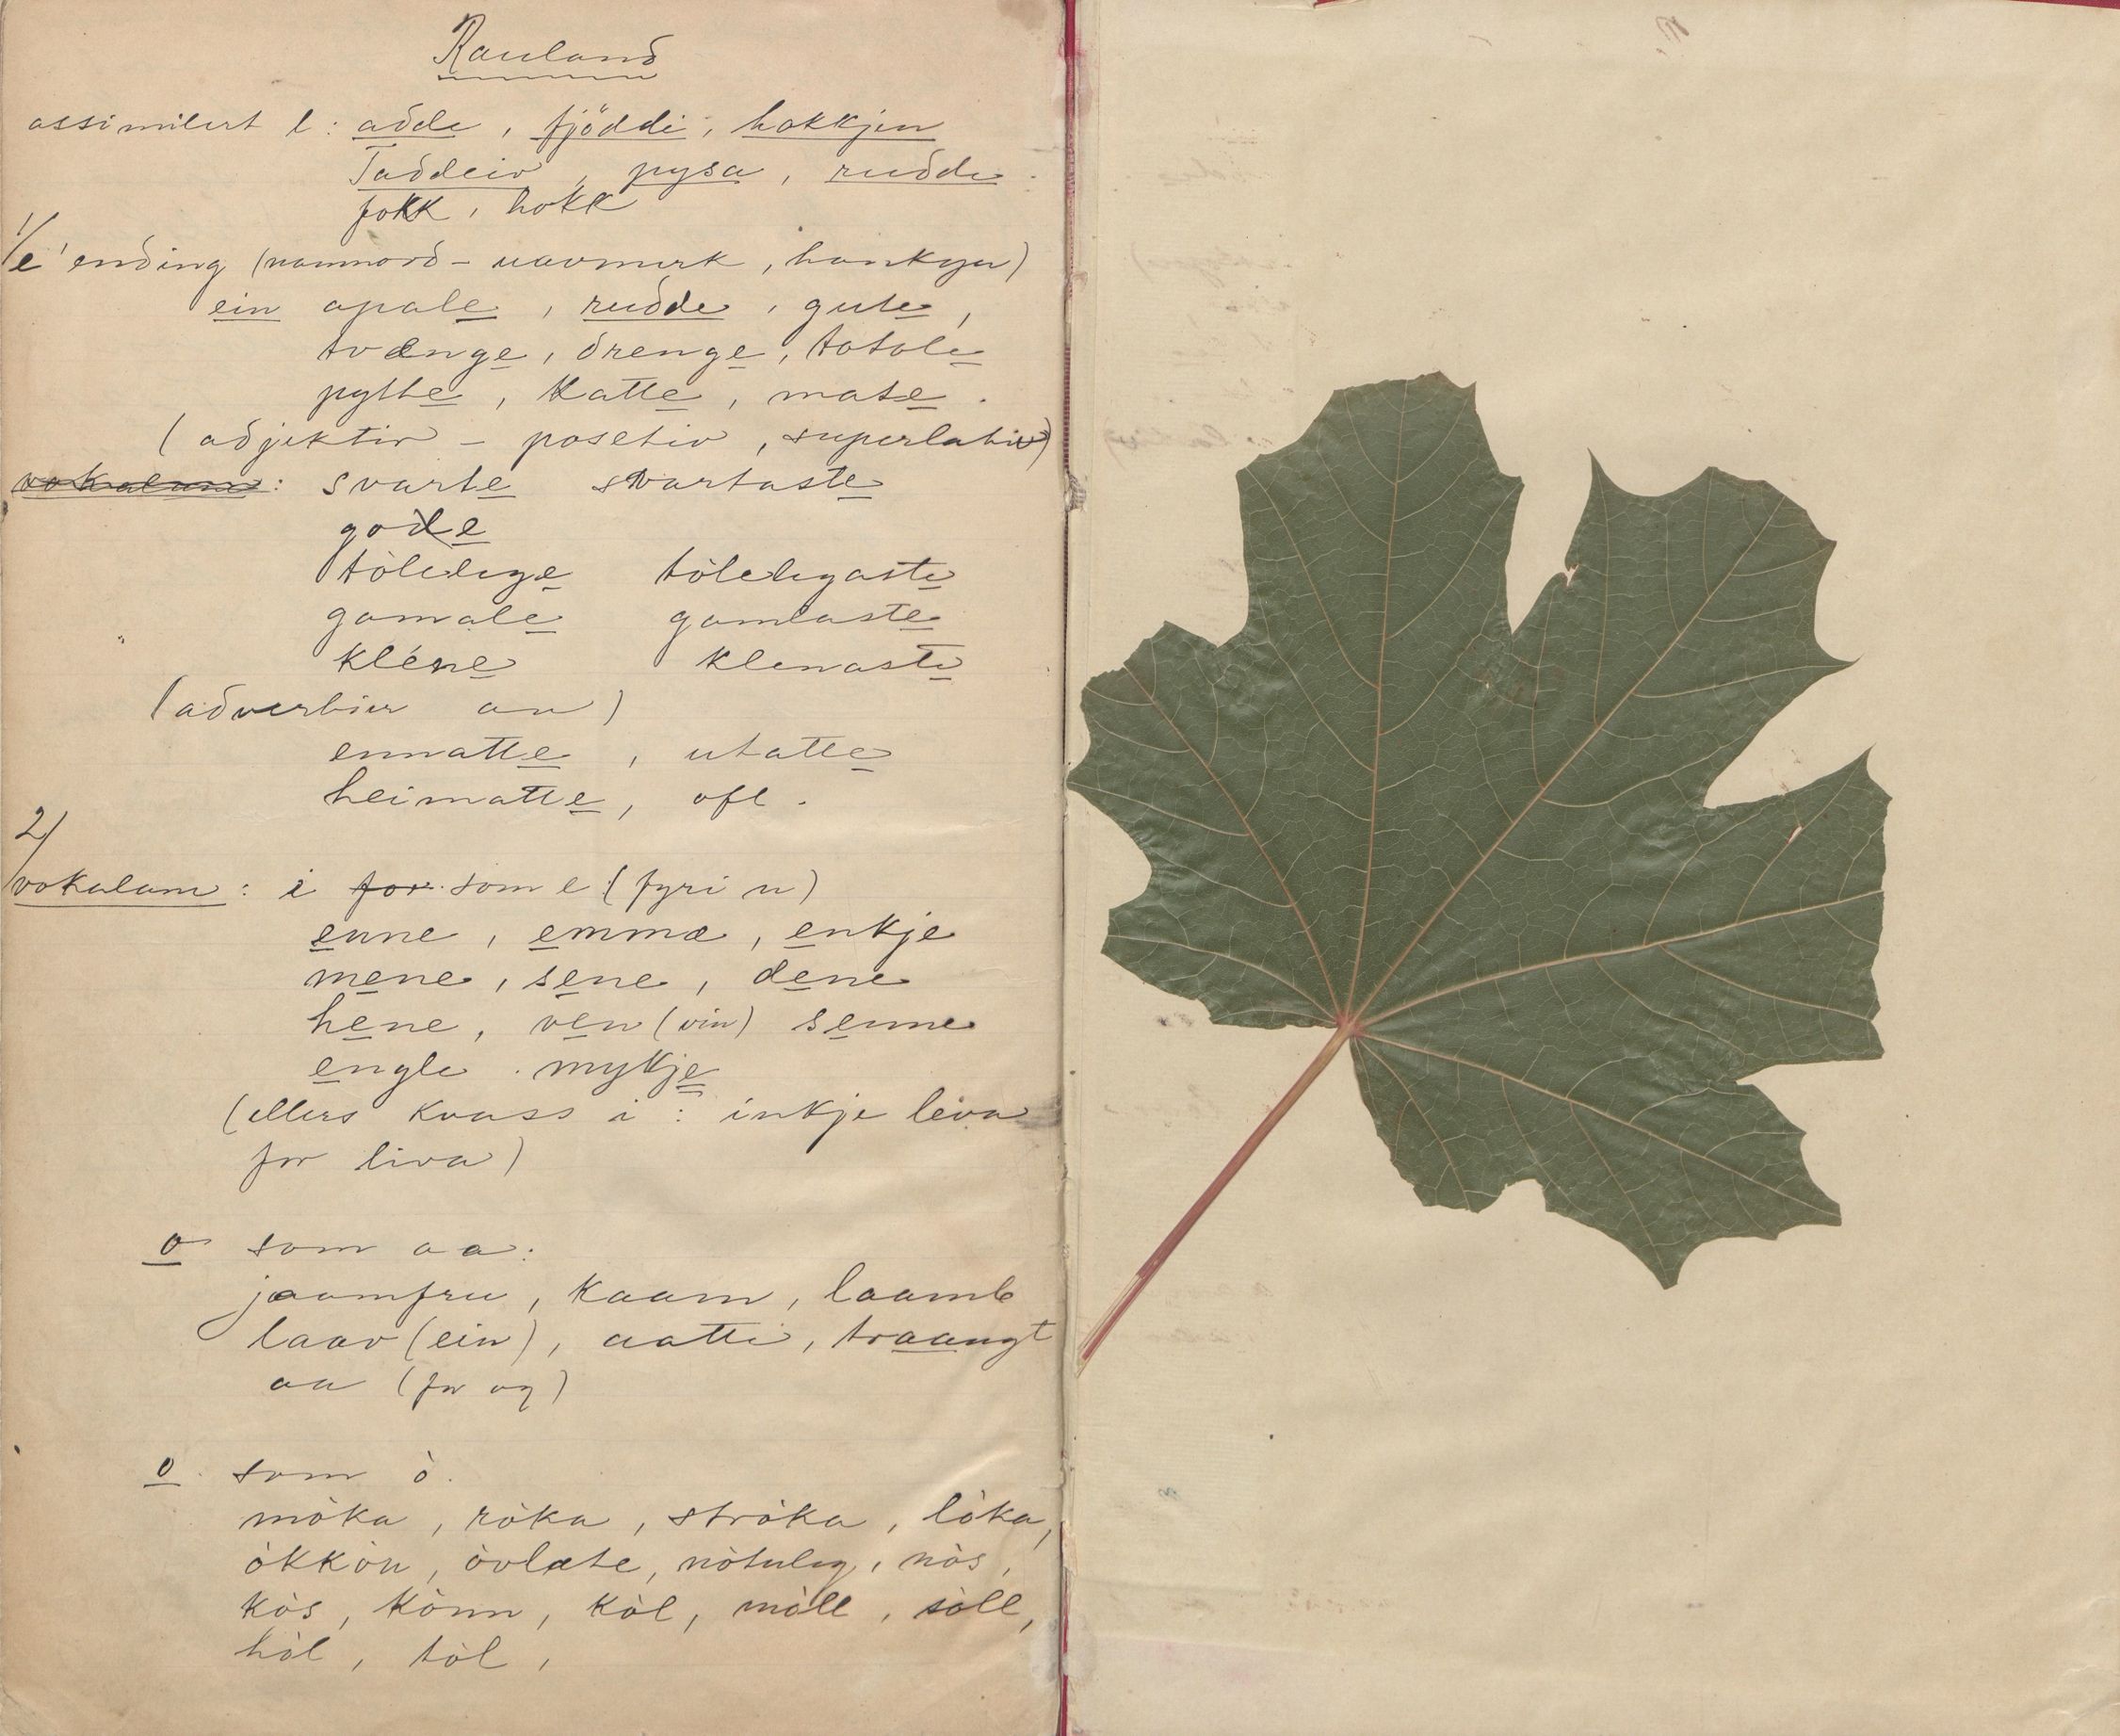 Rauland
assimilert l: adde, fjöddi, hokkjen
Taddeiv, pysa, rudde.
fokk, hokk
1/ e ending (namnord - uavmerk, hankyn)
ein apale, rudde, gute,
tvænge, drenge, totale
pytte, katte, mate.
(adjektiv - posetiv, superlativ)
vokalum: svarte svartaste
gode
tòlelege tòlelegaste
gamale gamlaste
kléne klenaste
(adverbier an)
ennatte, utatte
heimatte, ofl.
2/
vokalum: i for som e (fyri n)
enne, emmæ, enkje
mene, sene, dene
hene, ven (vin) senne
engle. mykje
(ellers kvass i: inkje leva
for liva)
o som aa:
jaamfru, kaam, laamb
laav (ein), aatti, traangt
aa (for og)
o som ò.
mòka, ròka, stròka, lòka,
òkkòn, òvlæte, nòtuleg, nòs,
kòs, kònn, kòl, mòll, sòll,
hòl, tòl,